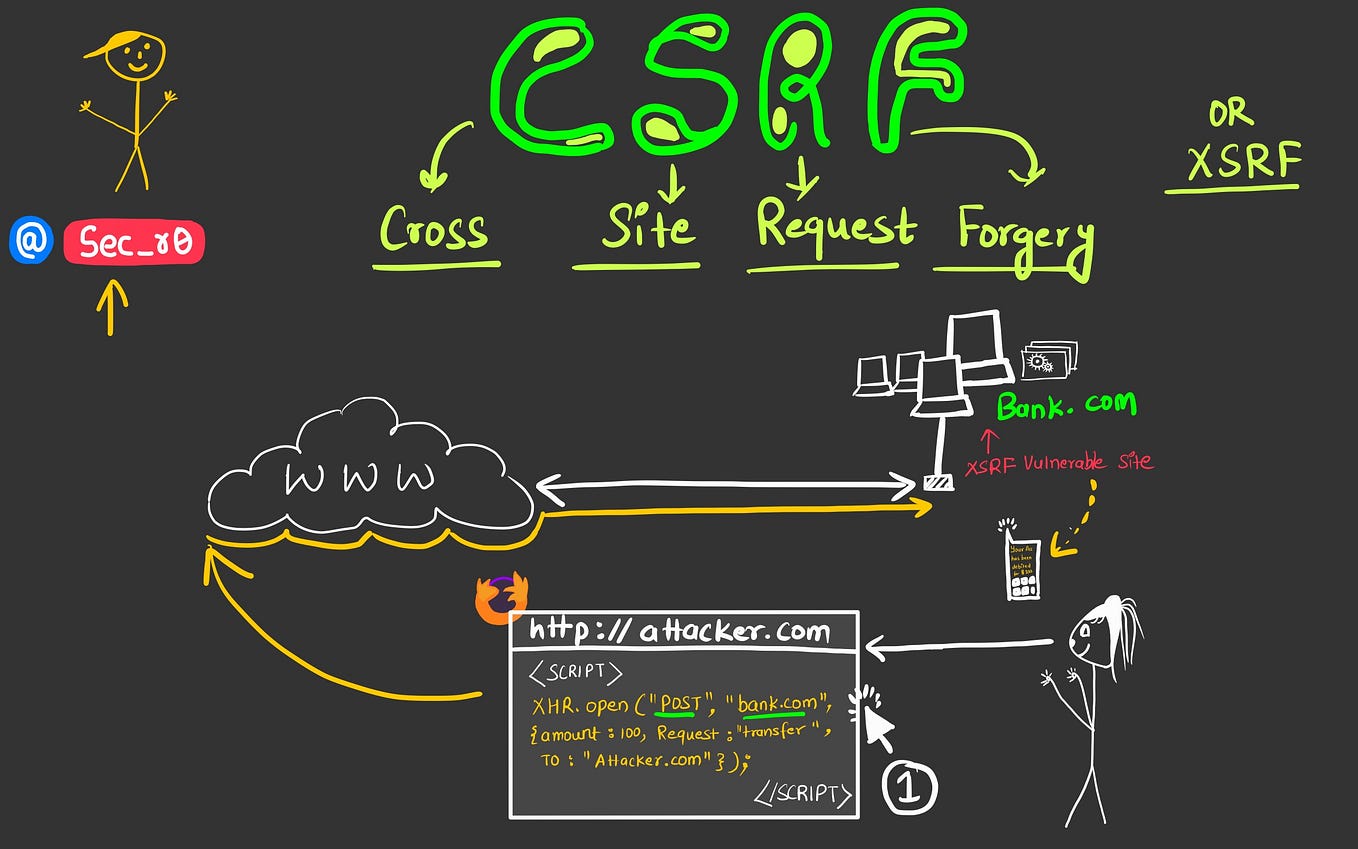 CSRF
OR
XSRF
Cross Site Request Forgery
@ Sec_r0
Bank.com
XSRF Vulnerable Site
WWW
Your Acc
has been
debited
for $100
http://attacker.com
<SCRIPT>
XHR.open("POST", "bank.com",
{amount : 100, Request : "transfer",
TO : "Attacker.com"});
</SCRIPT>
1